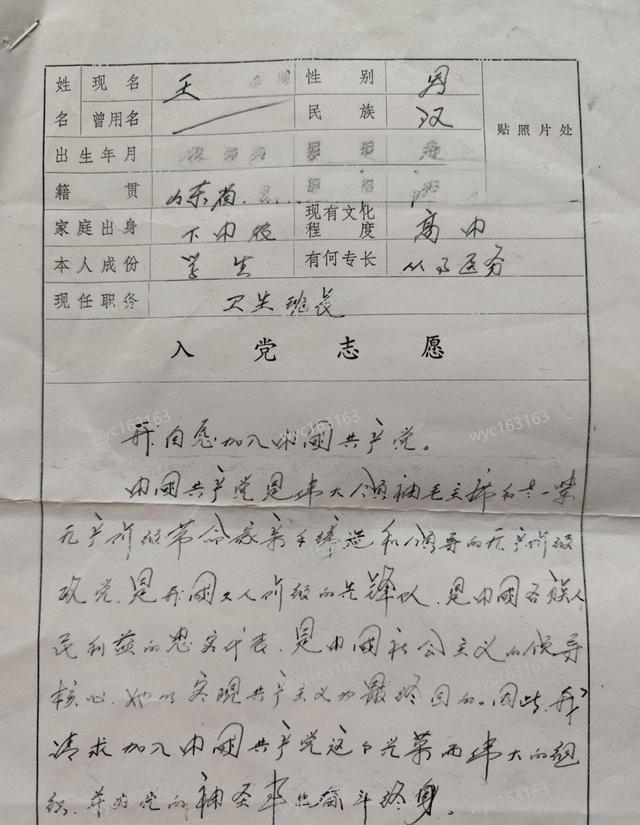 姓名 现名 王 性别 男
曾用名 民族 汉 贴照片处
出生年月
籍贯 山东省
家庭出身 下中农 现有文化程度 高中
本人成份 学生 有何专长 从事医务
现任职务 卫生班长
入党志愿
我自愿加入中国共产党。
中国共产党是伟大领袖毛主席和老一辈
无产阶级革命家亲手缔造和领导的无产阶级
政党。是我国工人阶级的先锋队,是中国各族人
民利益的忠实代表,是中国社会主义的领导
核心。她以实现共产主义为最终目的。因此,我
请求加入中国共产党这个光荣而伟大的组
织,并为党的 奋斗终身。
wyc163163